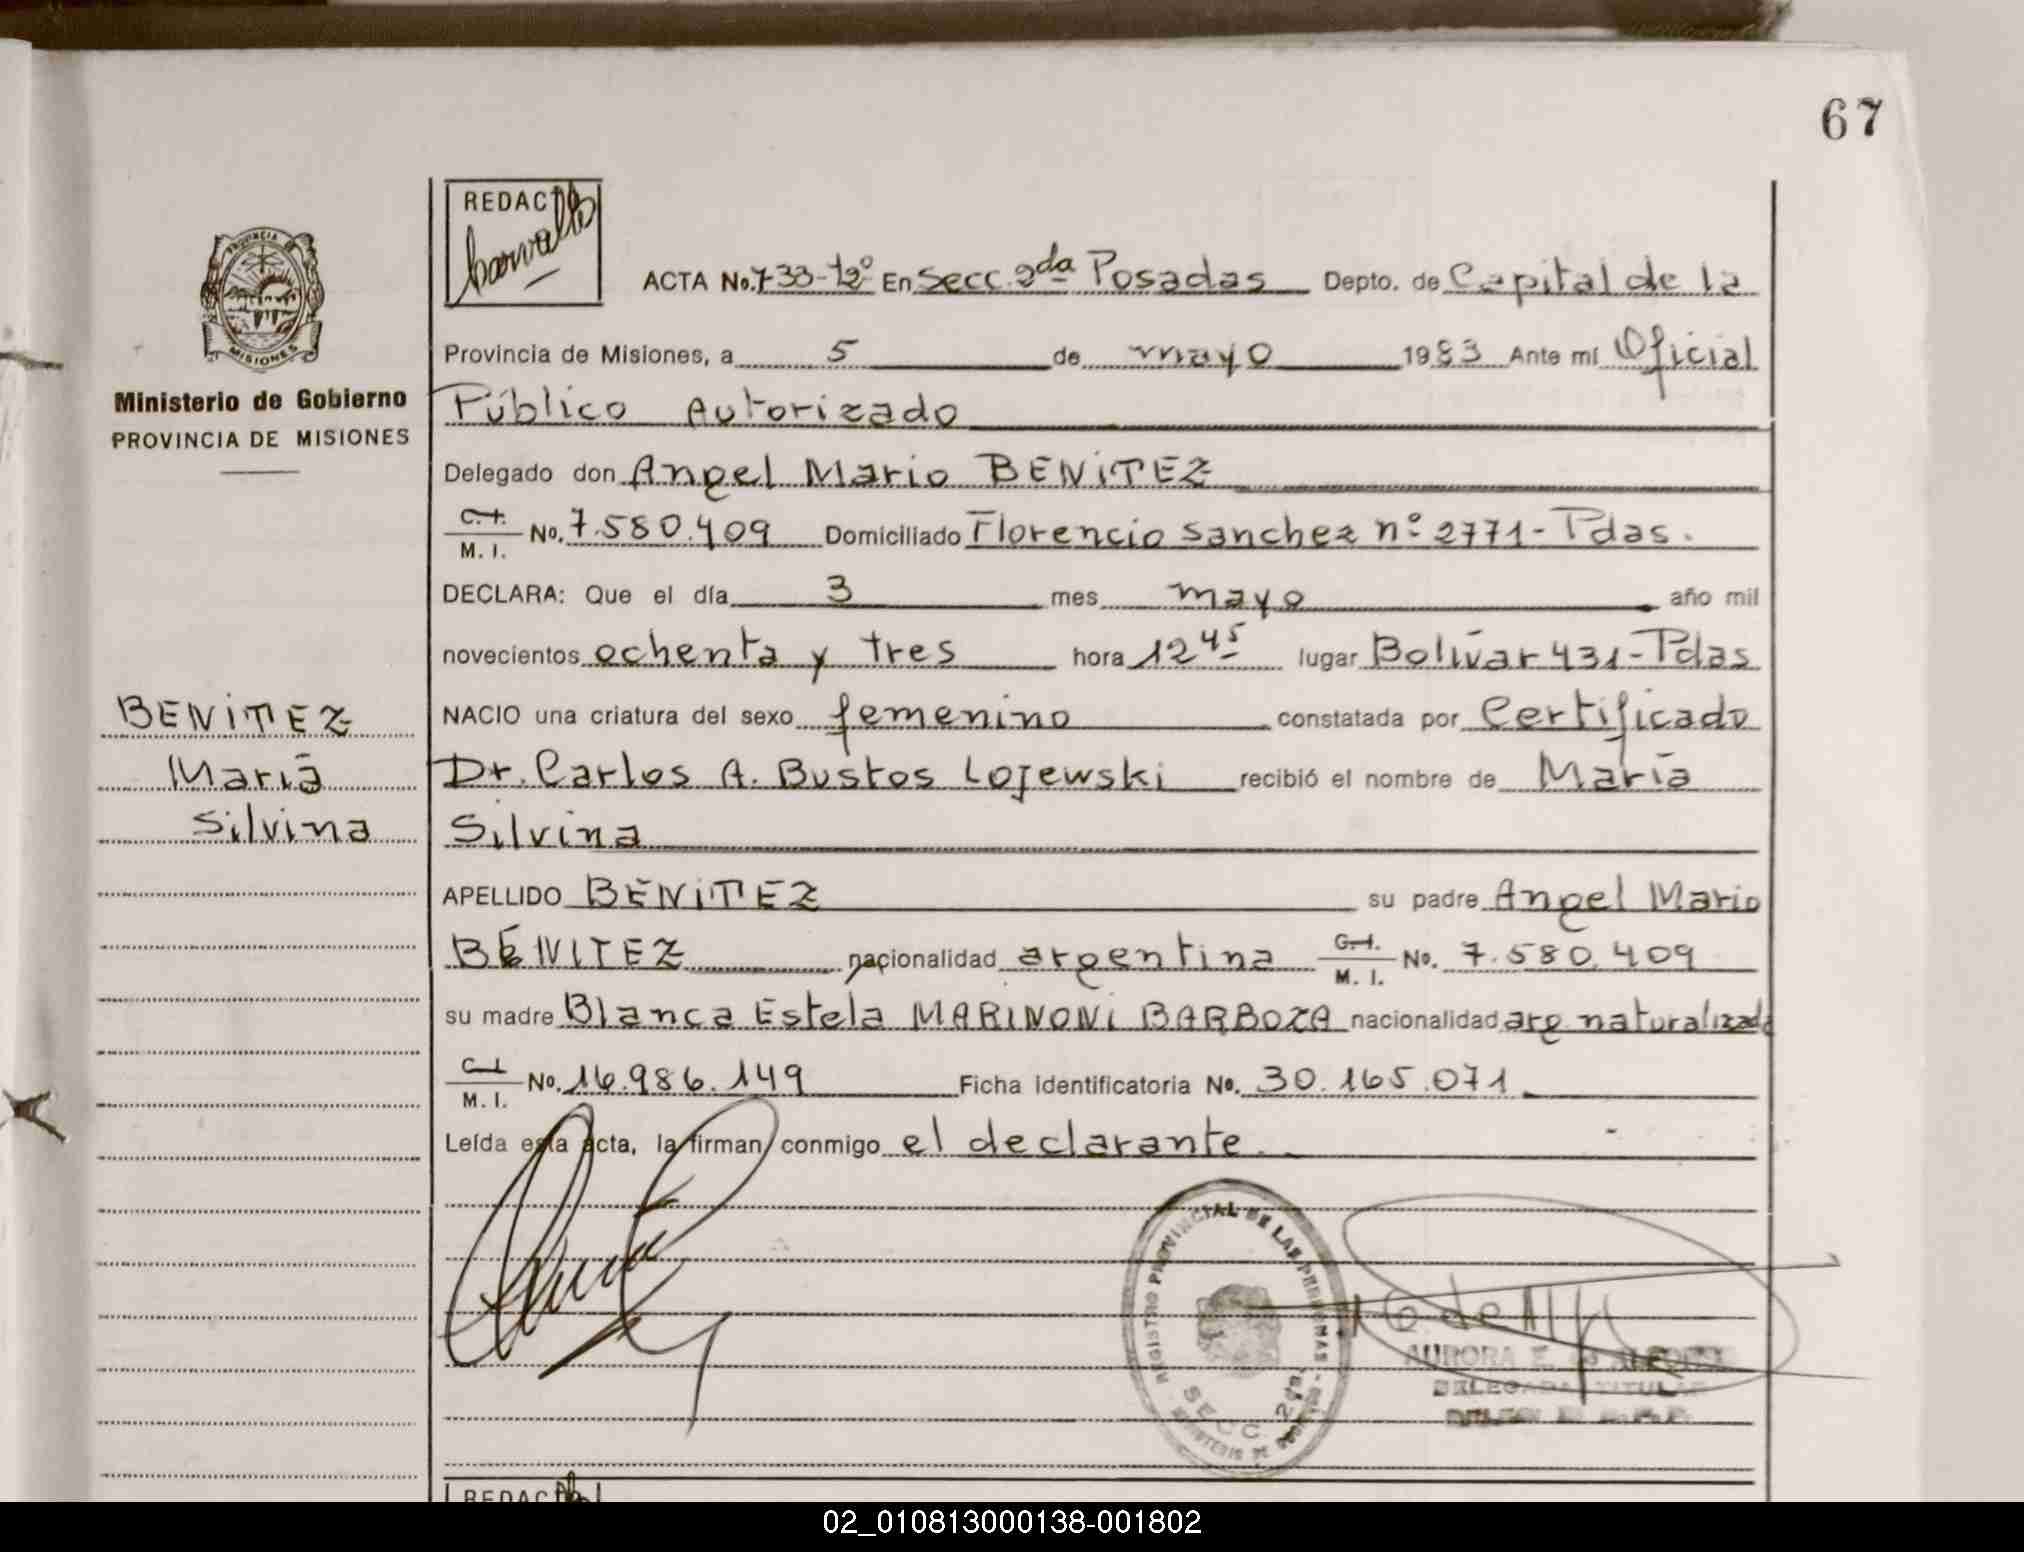 67
REDACTO
PROVINCIA DE
MISIONES
Ministerio de Gobierno
PROVINCIA DE MISIONES
ACTA No. 733-tº2º En Secc. 2da Posadas Depto. de Capital de la
Provincia de Misiones, a 5 de mayo 1983 Ante mí Oficial
Público Autorizado
Delegado don Angel Mario BENITEZ
C.I. / M. I. No. 7.580.409 Domiciliado Florencio Sanchez nº 2771 - Pdas.
DECLARA: Que el día 3 mes mayo año mil
novecientos ochenta y tres hora 12 45 lugar Bolívar 431 - Pdas
BENITEZ
María
Silvina
NACIO una criatura del sexo femenino constatada por Certificado
Dr. Carlos A. Bustos Lojewski recibió el nombre de María
Silvina
APELLIDO BENITEZ su padre Angel Mario
BENITEZ nacionalidad argentina C.I. / M. I. No. 7.580.409
su madre Blanca Estela MARINONI BARBOZA nacionalidad arg naturalizada
C.I. / M. I. No. 16.986.149 Ficha identificatoria No. 30.165.071
Leída esta acta, la firman conmigo el declarante.
REGISTRO PROVINCIAL DE LAS PERSONAS - MINISTERIO DE GOBIERNO
SECC. 2da.
AURORA E. de
DELEGADA TITULAR
REDACTO
02_010813000138-001802